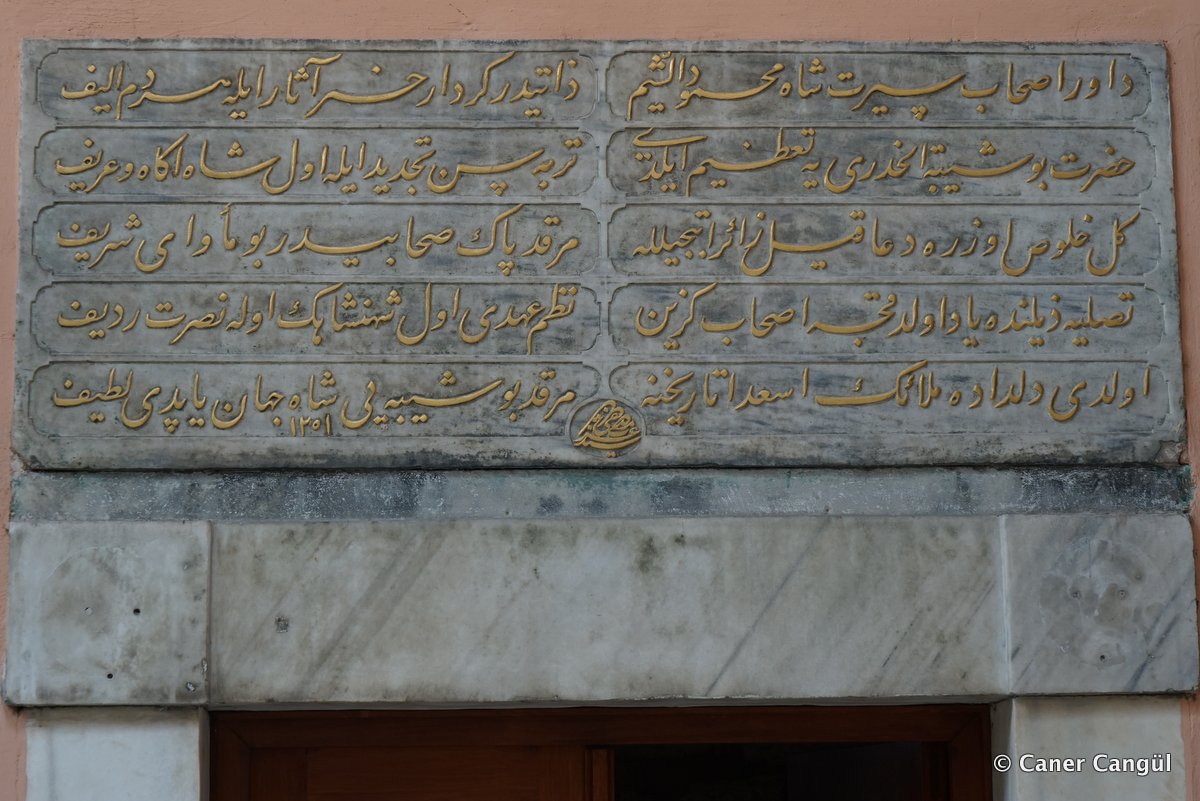 داور اصحاب سیرت شاه محمود الشیم
ذاتیدر کردار خیر آثار ایله هردم الیف
حضرت بو شیبة الخدری یه تعظیم ایلدی
تربه سن تجدید ایله اول شاه اکاه و عریف
کل خلوص اوزره دعا قیل زائرا تبجیلله
مرقد پاك صحابیدر بو مأوای شریف
تصلیه ذیلنده یاد اولدقجه اصحاب کزین
نظم عهدی اول شهنشاهك اوله نصرت ردیف
اولدی دلداده ملائك اسعدا تاریخنه
مرقد بو شیبه یی شاه جهان یاپدی لطیف
١٢٥١
© Caner Cangül